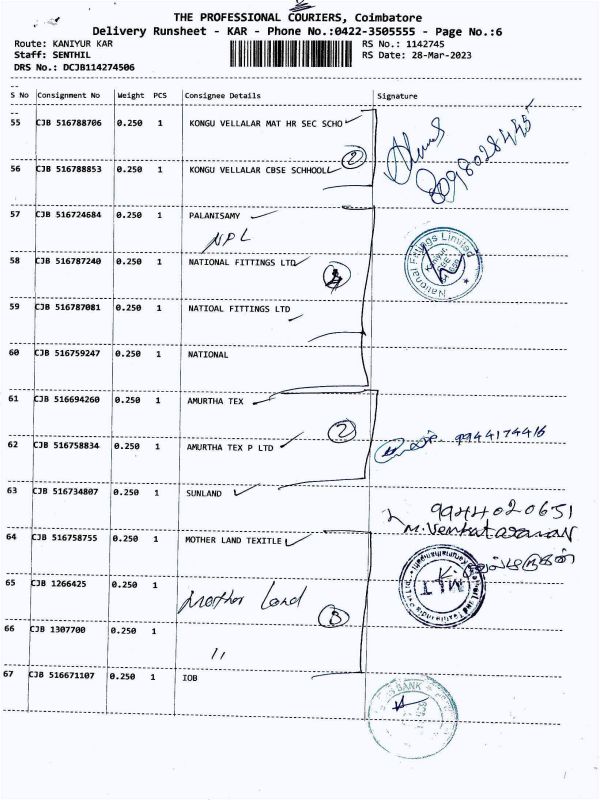 THE PROFESSIONAL COURIERS, Coimbatore
Delivery Runsheet - KAR - Phone No.:0422-3505555 - Page No.:6
Route: KANIYUR KAR RS No.: 1142745
Staff: SENTHIL RS Date: 28-Mar-2023
DRS No.: DCJB114274506
S No Consignment No Weight PCS Consignee Details Signature
55 CJB 516788706 0.250 1 KONGU VELLALAR MAT HR SEC SCHO
2
8098028445
56 CJB 516788853 0.250 1 KONGU VELLALAR CBSE SCHHOOL
57 CJB 516724684 0.250 1 PALANISAMY
NPL
National Fittings Limited
58 CJB 516787240 0.250 1 NATIONAL FITTINGS LTD
59 CJB 516787081 0.250 1 NATIOAL FITTINGS LTD
60 CJB 516759247 0.250 1 NATIONAL
61 CJB 516694260 0.250 1 AMURTHA TEX
2
9944174416
62 CJB 516758834 0.250 1 AMURTHA TEX P LTD
63 CJB 516734807 0.250 1 SUNLAND
9944020651
M. Venkataraman
64 CJB 516758755 0.250 1 MOTHER LAND TEXITLE
MLT
65 CJB 1266425 0.250 1 Mother Land
3
66 CJB 1307700 0.250 1 "
67 CJB 516671107 0.250 1 IOB
BANK